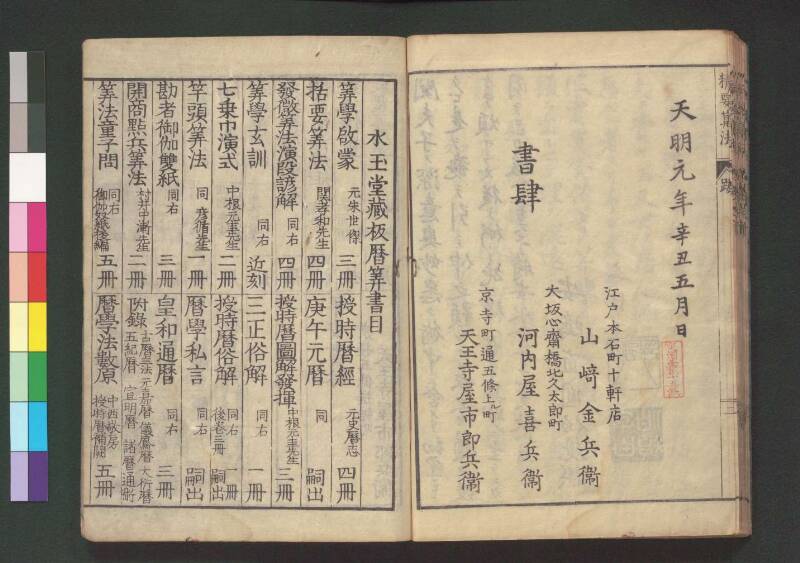 天明元年辛丑五月日
書肆
江戸本石町十軒店
山﨑金兵衞
大坂心齋橋北久太郎町
河内屋喜兵衞
京寺町通五條上ル町
天王寺屋市郎兵衞
水玉堂藏板暦筭書目
筭學啟蒙 元朱世傑 三冊
括要筭法 関孝和先生 四冊
發微筭法演段諺解 同右 四冊
筭學玄訓 同右 近刻
七乗巾演式 中根元圭先生 二冊
竿頭筭法 同 彦循先生 一冊
勘者御伽雙紙 同右 三冊
開商點兵筭法 村井中漸先生 二冊
筭法童子問 同右 御伽双紙後編 五冊
授時暦經 元史暦志 四冊
庚午元暦 同 嗣出
授時暦圖解發揮 中根元圭先生 三冊
三正俗解 同右 一冊
授時暦俗解 同右 一冊 後巻三冊 嗣出
暦學私言 同右 嗣出
皇和通暦 同右 三冊
附錄 古暦三法 元嘉暦 儀鳳暦 大衍暦 五紀暦 宣明暦 諸暦通断
暦學法數原 中西敬房 授時暦關關 五冊
精要筭法
跋